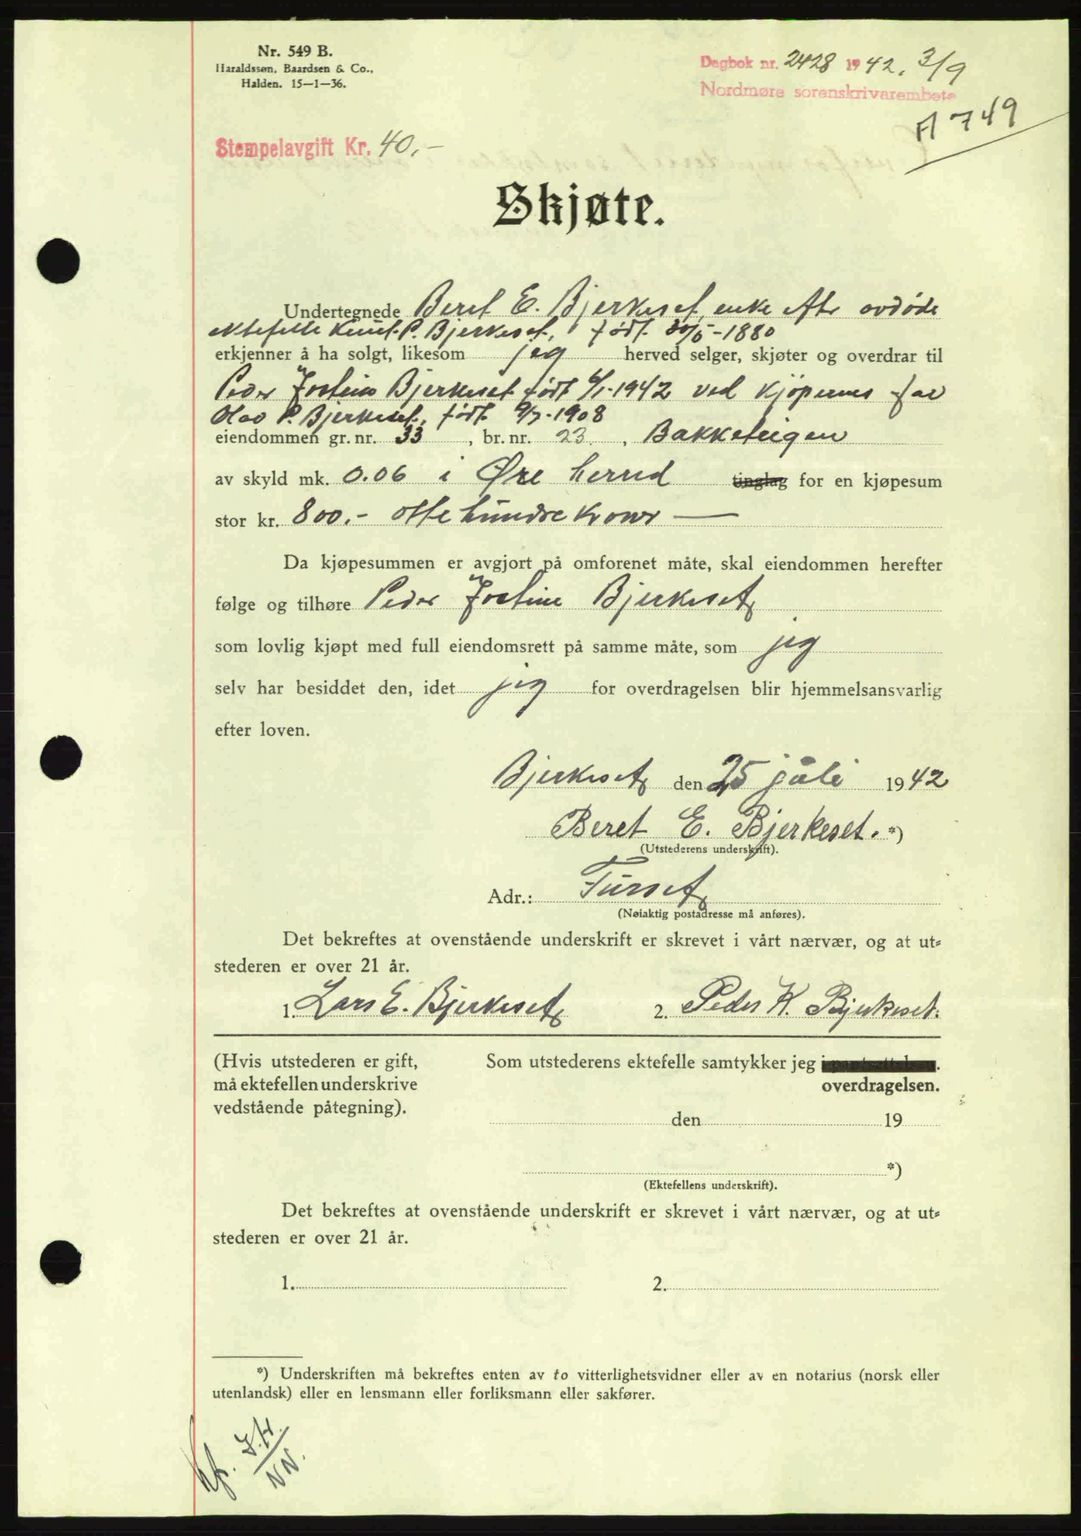 Nr. 549 B.
Haraldssøn, Baardsen & Co.,
Halden. 15—1—36.
Dagbok nr. 2428 1942. 3/9
Nordmøre sorenskriverembete
A 749
Stempelavgift Kr. 40,-
Skjøte.
Undertegnede Beret E. Bjerkeset, enke etter avdøde
ektefelle Knut P. Bjerkeset, født /5-1880
erkjenner å ha solgt, likesom jeg herved selger, skjøter og overdrar til
Peder Jostein Bjerkeset født 6/1-1942 ved kjøperens far
Olav P. Bjerkeset, født 9/7-1908
eiendommen gr. nr. 33, br. nr. 23., Bakketeigen
av skyld mk. 0.06 i Øre herred tinglag for en kjøpesum
stor kr. 800.- otte hundre kroner —
Da kjøpesummen er avgjort på omforenet måte, skal eiendommen herefter
følge og tilhøre Peder Jostein Bjerkeset
som lovlig kjøpt med full eiendomsrett på samme måte, som jeg
selv har besiddet den, idet jeg for overdragelsen blir hjemmelsansvarlig
efter loven.
Bjerkeset den 25 juli 1942
Beret E. Bjerkeset. *)
(Utstederens underskrift).
Adr.: Furset
(Nøiaktig postadresse må anføres).
Det bekreftes at ovenstående underskrift er skrevet i vårt nærvær, og at ut=
stederen er over 21 år.
1. Lars E. Bjerkeset 2. Peder K. Bjerkeset.
(Hvis utstederen er gift, Som utstederens ektefelle samtykker jeg i pantsettelsen.
må ektefellen underskrive overdragelsen.
vedstående påtegning).
den 19
*)
(Ektefellens underskrift).
Det bekreftes at ovenstående underskrift er skrevet i vårt nærvær, og at ut=
stederen er over 21 år.
1. 2.
*) Underskriften må bekreftes enten av to vitterlighetsvidner eller av en notarius (norsk eller
utenlandsk) eller en lensmann eller forliksmann eller sakfører.